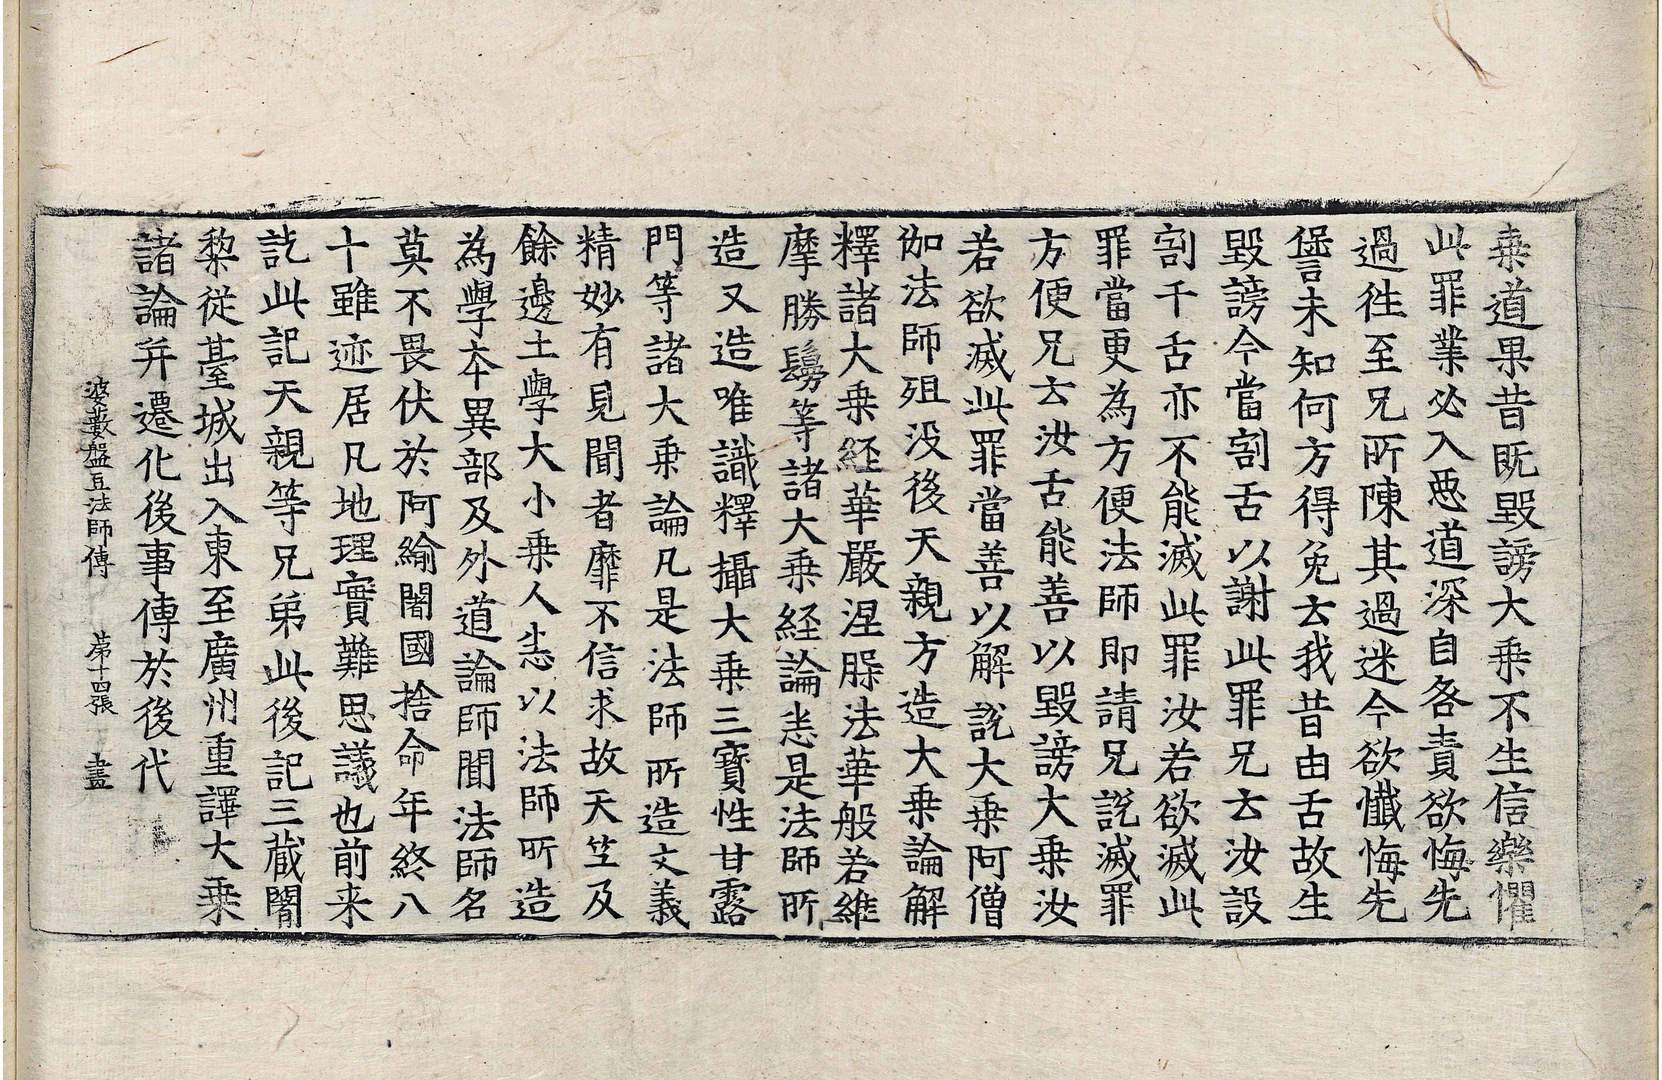 乗道果昔既毀謗大乗不生信樂懼
此罪業必入惡道深自各責欲悔先
過徃至兄所陳其過迷今欲懴悔先
𠎝未知何方得免云我昔由舌故生
毀謗今當割舌以謝此罪兄云汝設
割千舌亦不能滅此罪汝若欲滅此
罪當更為方便法師即請兄説滅罪
方便兄云汝舌能善以毀謗大乗汝
若欲滅此罪當善以解説大乗阿僧
伽法師殂没後天親方造大乗論解
釋諸大乗経華嚴涅槃法華般若維
摩勝鬘等諸大乗経論悉是法師所
造又造唯識釋攝大乗三寶性甘露
門等諸大乗論凡是法師所造文義
精妙有見聞者靡不信求故天竺及
餘邊土學大小乗人悉以法師所造
為學夲異部及外道論師聞法師名
莫不畏伏於阿緰闍國捨命年終八
十雖迹居凡地理實難思議也前来
訖此記天親等兄弟此後記三藏闍
黎從䑓城出入東至廣州重譯大乗
諸論并遷化後事傳於後代
婆藪盤豆法師傳 第十四張 盡